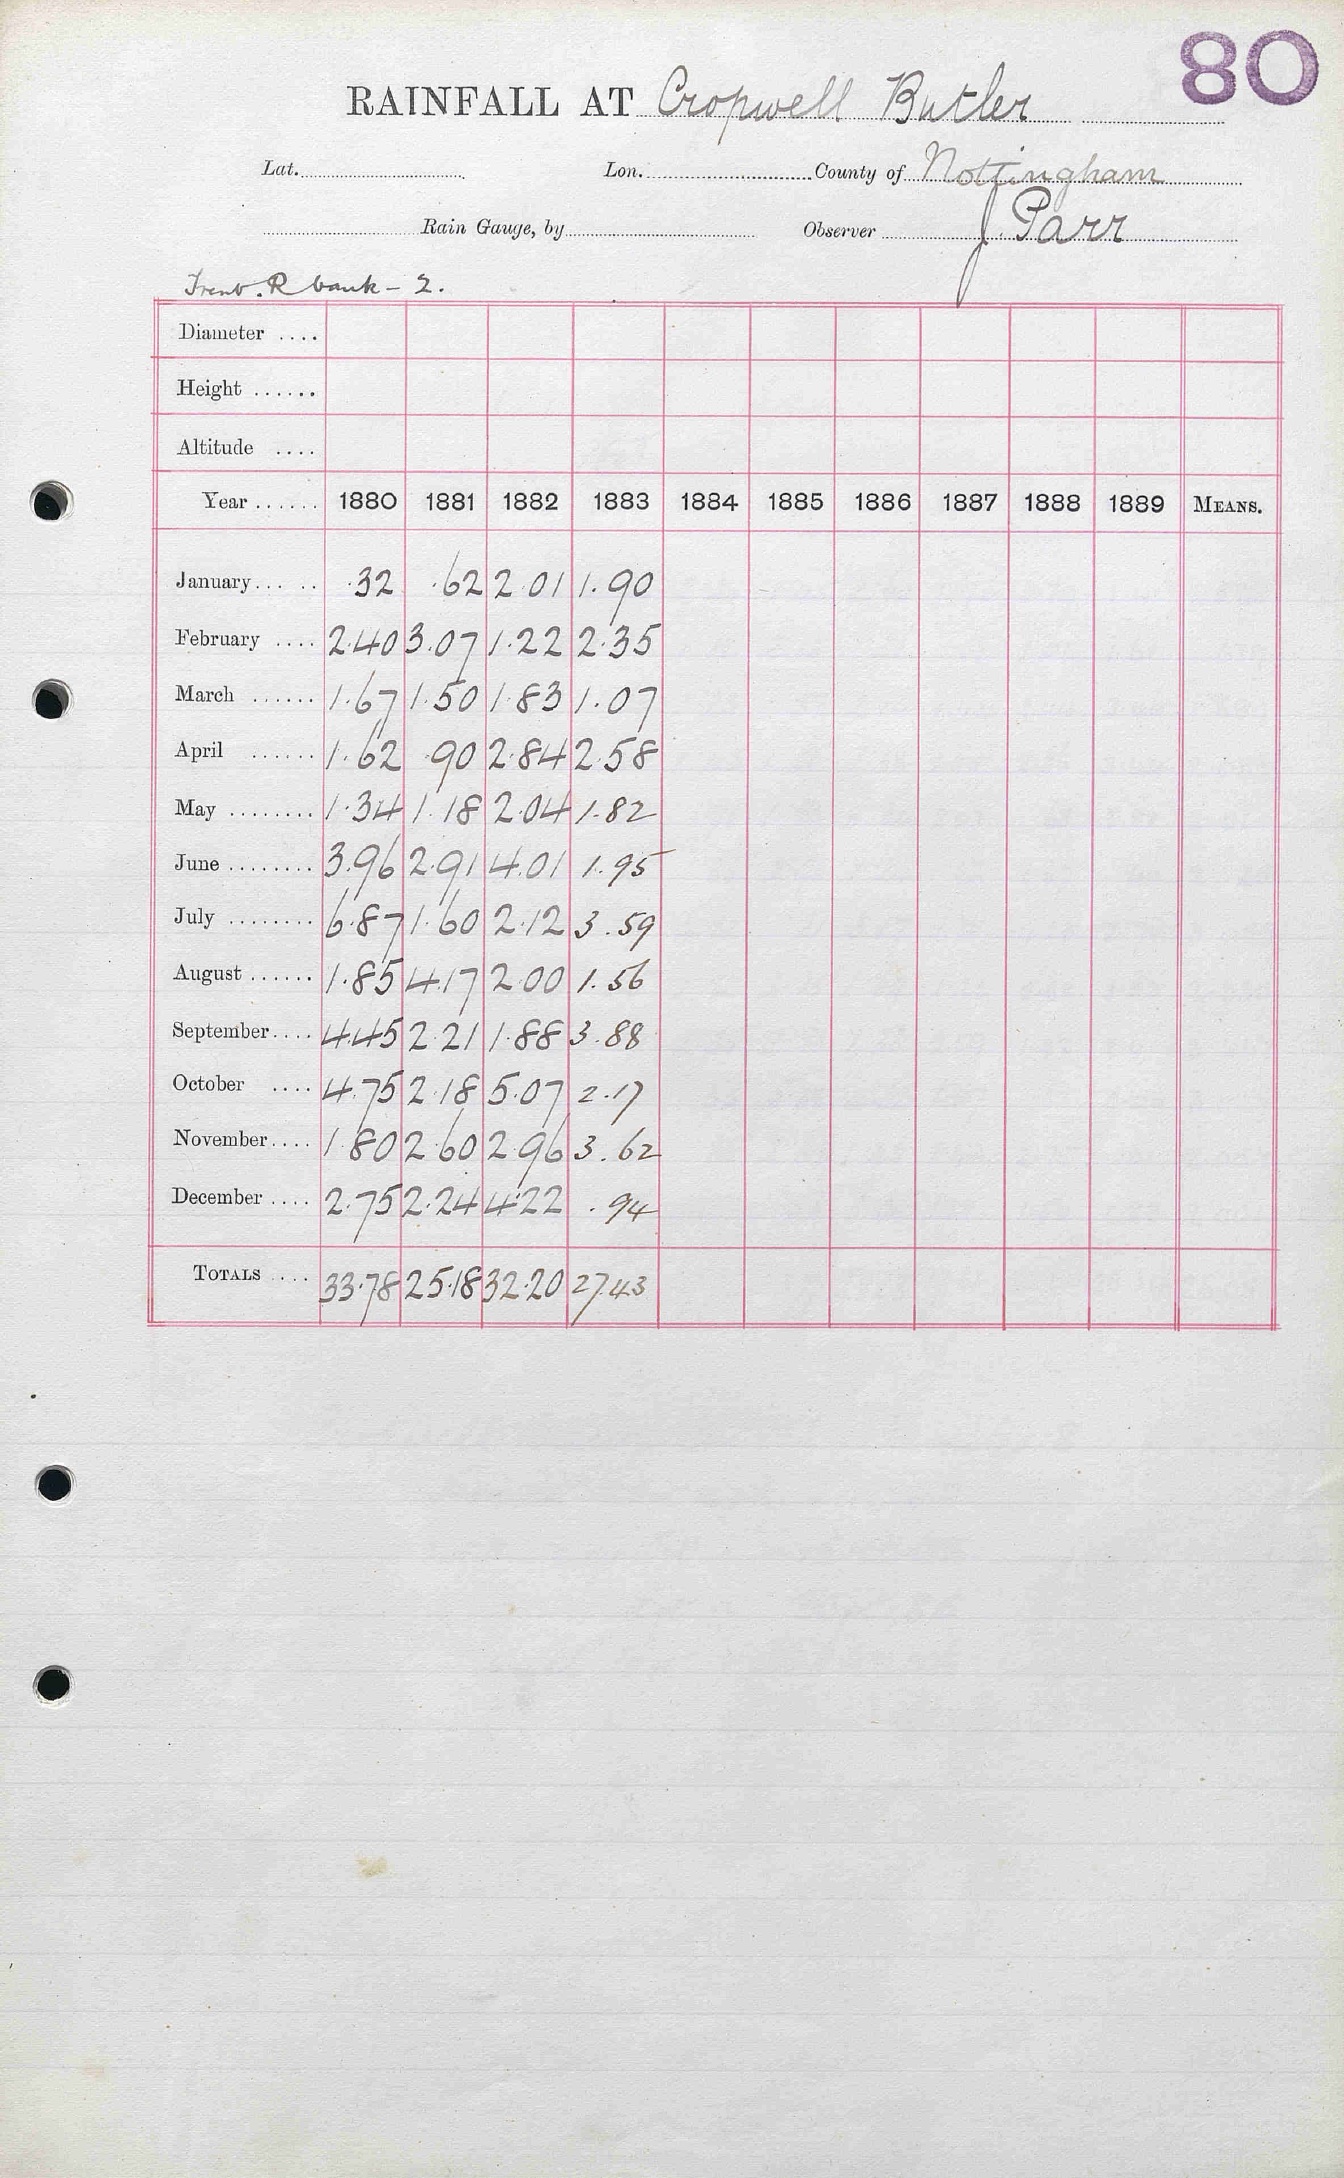 80
RAINFALL AT Cropwell Butler
Lat. Lon. County of Nottingham
Rain Gauge, by Observer J. Parr
Trent. R bank - 2.
Diameter ....
Height ......
Altitude ....
Year ...... 1880 1881 1882 1883 1884 1885 1886 1887 1888 1889 MEANS.
January ..... .32 .62 2.01 1.90
February .... 2.40 3.07 1.22 2.35
March ...... 1.67 1.50 1.83 1.07
April ...... 1.62 .90 2.84 2.58
May ........ 1.34 1.18 2.04 1.82
June ........ 3.96 2.91 4.01 1.95
July ........ 6.87 1.60 2.12 3.59
August ...... 1.85 4.17 2.00 1.56
September .... 4.45 2.21 1.88 3.88
October .... 4.75 2.18 5.07 2.17
November .... 1.80 2.60 2.96 3.62
December .... 2.75 2.24 4.22 .94
TOTALS .... 33.78 25.18 32.20 27.43